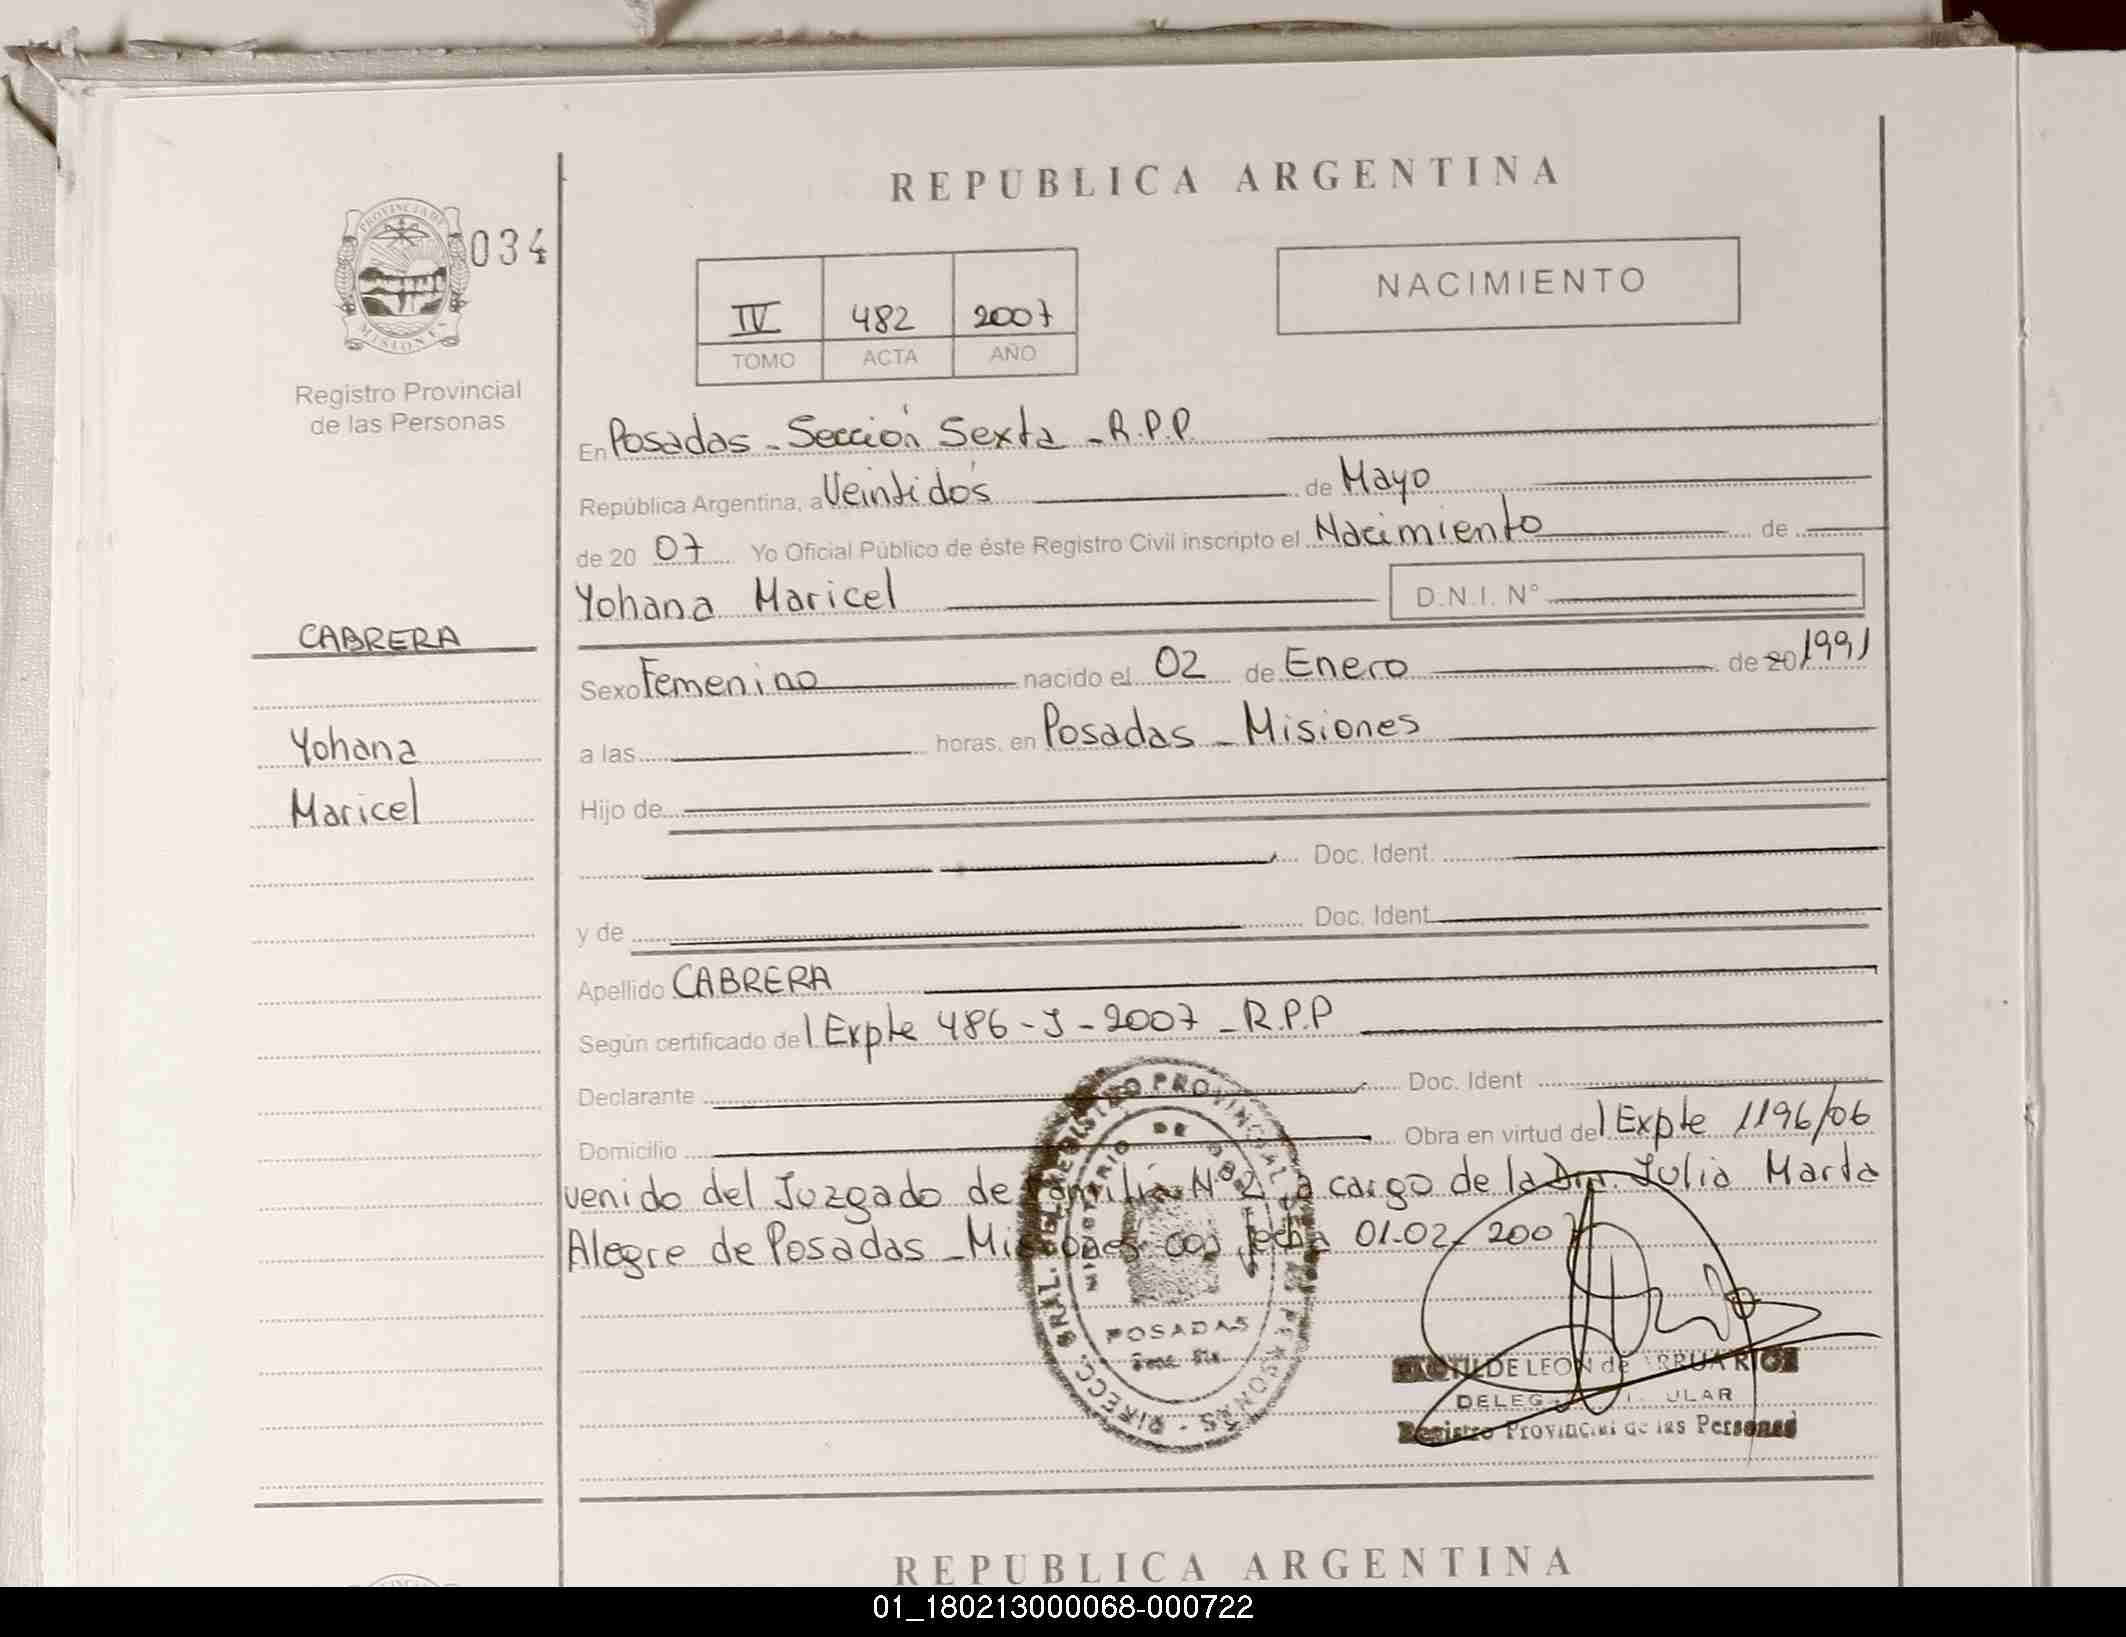 REPUBLICA ARGENTINA
PROVINCIA DE
MISIONES
034
Registro Provincial
de las Personas
IV 482 2007
TOMO ACTA AÑO
NACIMIENTO
CABRERA
Yohana
Maricel
En Posadas - Sección Sexta - R.P.P.
República Argentina, a Veintidós de Mayo
de 20 07 Yo Oficial Público de éste Registro Civil inscripto el Nacimiento de
Yohana Maricel D.N.I. Nº
Sexo Femenino nacido el 02 de Enero de 20 1991
a las horas, en Posadas - Misiones
Hijo de
Doc. Ident.
y de Doc. Ident.
Apellido CABRERA
Según certificado del Expte 486-J-2007 - R.P.P
Declarante Doc. Ident
Domicilio Obra en virtud del Expte 1196/06
venido del Juzgado de Familia Nº 2 a cargo de la Dra. Julia Marta
Alegre de Posadas - Misiones con fecha 01-02-2007
DIRECC. GRAL. DEL REGISTRO PROVINCIAL DE LAS PERSONAS
MINISTERIO DE
POSADAS
DE LEON de ARRUA RIOS
Registro Provincial de las Personas
REPUBLICA ARGENTINA
01_180213000068-000722